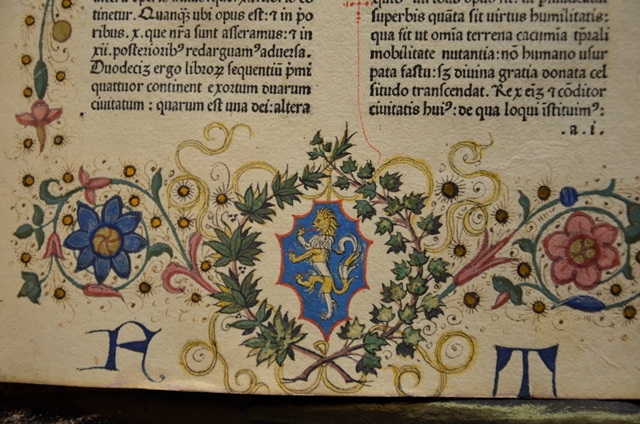 tinetur. Quanqȝ ubi opus est: ⁊ in ṗo
ribus. x. que nr̄a sunt asseramus: ⁊ in
xii. posteriorib⁹ redarguam⁹ aduersa.
Duodeciȝ ergo libroꝝ sequentiū p̄mi
quattuor continent exortum duarum
ciuitatum : quarum est una dei: altera
superbis quāta sit uirtus humilitatis:
qua fit ut om̄ia terrena cacumīa tp̄rali
mobilitate nutantia: nō humano usur
pata fastu: sȝ diuina gratia donata cel
situdo transcendat. Rex eiȝ ⁊ cōditor
ciuitatis hui⁹: de qua loqui īstituim⁹:
.a.i.
A T